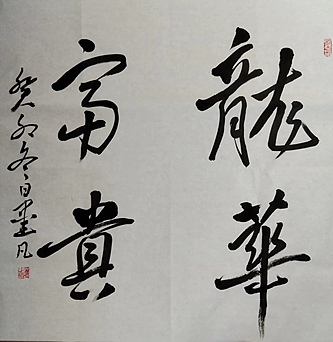 龍華
富貴
癸卯冬日墨凡